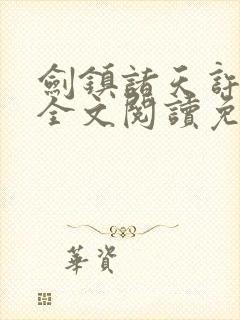 劍鎮諸天許
全文閱讀免
華資